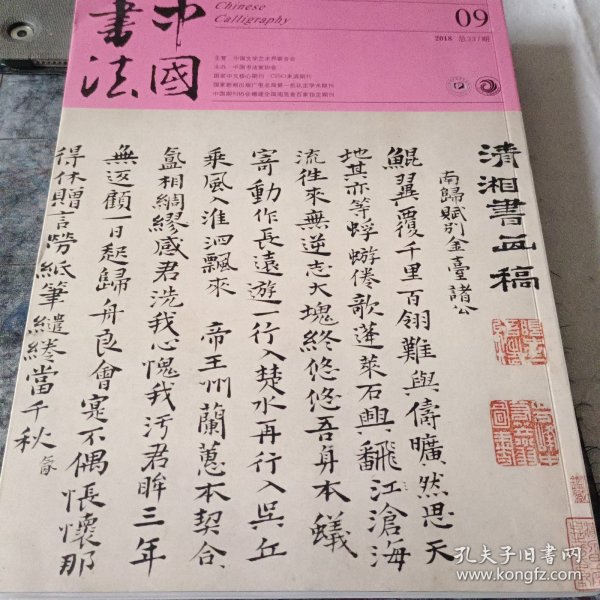 中國書法
Chinese
Calligraphy
09
2018 总337期
主管 中国文学艺术界联合会
主办 中国书法家协会
国家中文核心期刊 CSSCI来源期刊
国家新闻出版广电总局第一批认定学术期刊
清湘書画稿
南歸賦別金臺諸公
鯤翼覆千里百翎難與儔曠然思天
地其亦等蜉蝣倦歌蓬萊石興飜江滄海
流往來無逆志大塊終悠悠吾身本蟻
寄動作長遠遊一行入楚水再行入吳丘
乘風入淮泗飄來 帝王州蘭蕙本契合
氳相綢繆感君洗我心愧我污君眸三年
無返顧一日起歸舟良會寔不偶悵懷那
得休贈言勞紙筆繾綣當千秋
孔夫子旧书网
www.kongfz.com